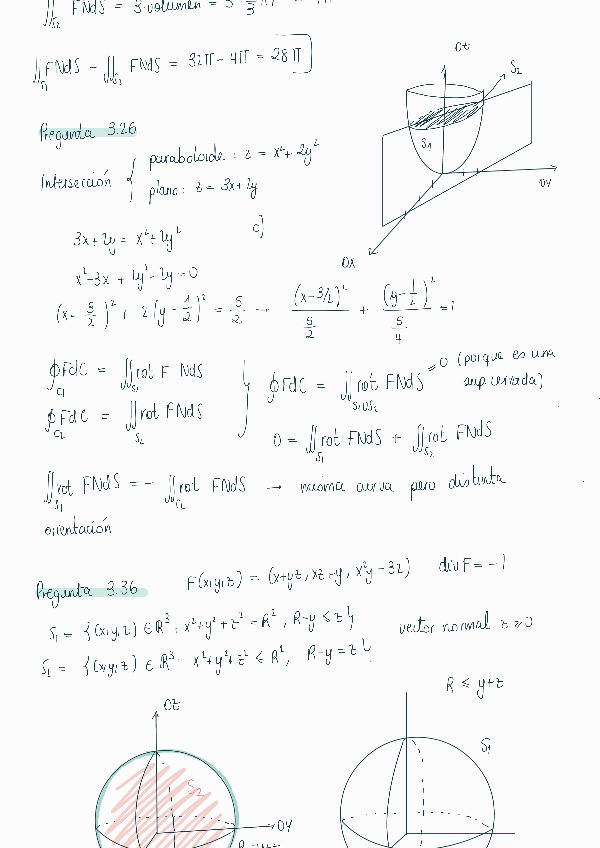 ∬_{S2} FNdS = 3·volumen = 3
∬_{S1} FNdS − ∬_{S2} FNdS = 32π − 4π = 28π
OZ
S2
S1
OY
OX
Pregunta 3.26
Intersección { paraboloide: z = x² + 2y²
plano: z = 3x + 2y
3x + 2y = x² + 2y²
c)
x² − 3x + 2y² − 2y = 0
(x − 3/2)² + 2(y − 1/2)² = 5/2 → (x − 3/2)² / (5/2) + (y − 1/2)² / (5/4) = 1
∮_{C1} FdC = ∬_{S1} rot F NdS
∮_{C2} FdC = ∬_{S2} rot FNdS
∮FdC = ∬_{S1∪S2} rot FNdS = 0 (porque es una sup cerrada)
0 = ∬_{S1} rot FNdS + ∬_{S2} rot FNdS
∬_{S1} rot FNdS = − ∬_{S2} rot FNdS → misma curva pero distinta
orientación
Pregunta 3.36 F(x,y,z) = (x+yz, xz+y, x²y − 3z) div F = −1
S1 = {(x,y,z) ∈ R³: x²+y²+z² = R², R−y ≤ z} vector normal z ≥ 0
S2 = {(x,y,z) ∈ R³: x²+y²+z² ≤ R², R−y = z}
R ≤ y+z
OZ
S2
OY
S1